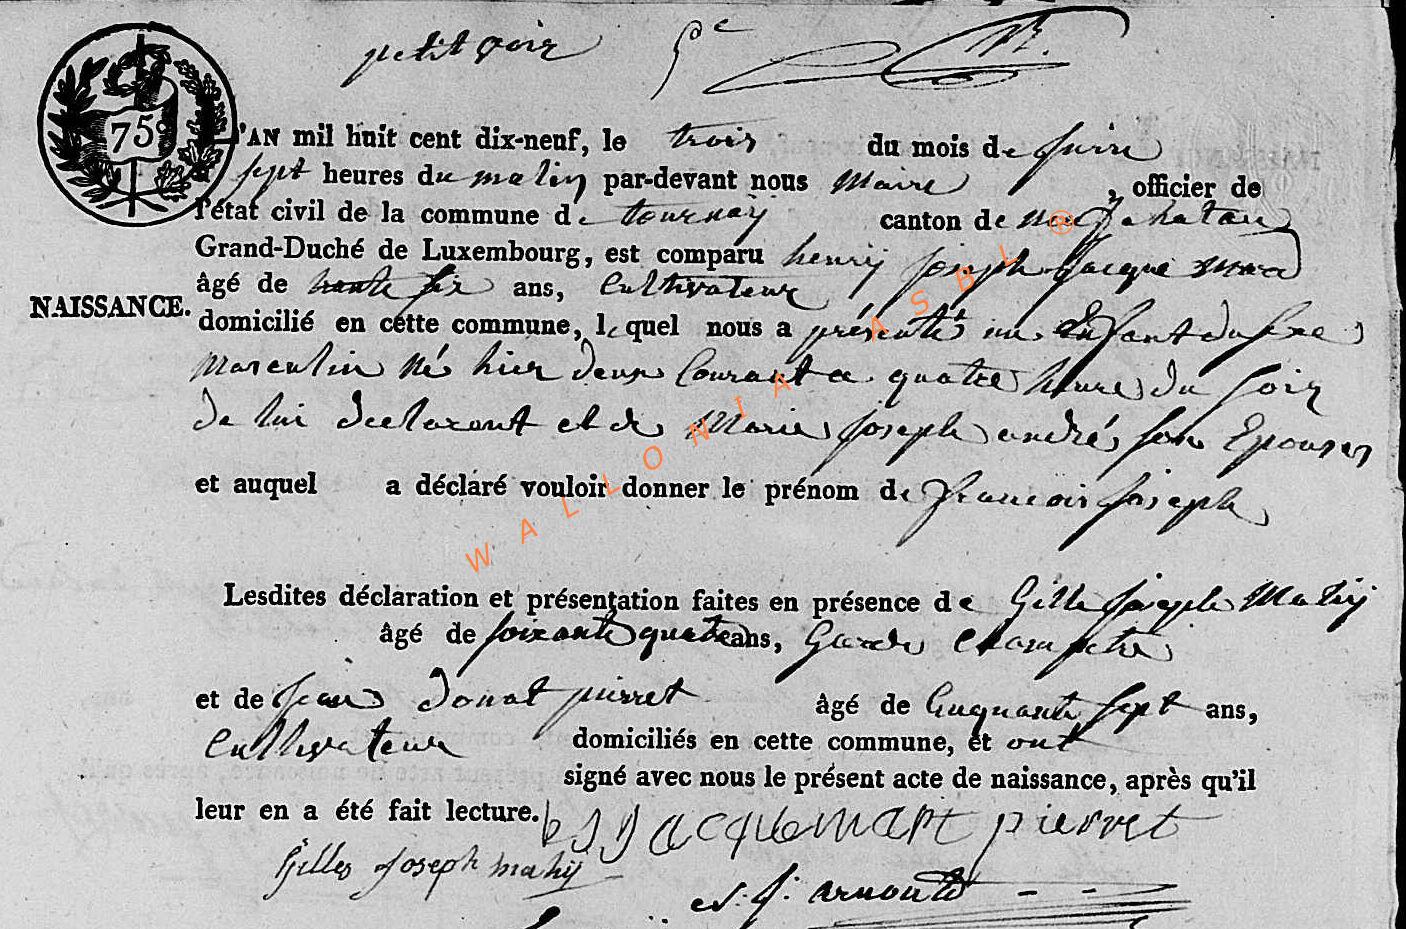 petit voir 5e
75
L'AN mil huit cent dix-neuf, le trois du mois de juin
à sept heures du matin par-devant nous Maire, officier de
l'état civil de la commune de tournay canton de neufchateau
Grand-Duché de Luxembourg, est comparu henry joseph jacque mard
âgé de trente six ans, Cultivateur
NAISSANCE.
domicilié en cette commune, lequel nous a présenté un Enfant du sexe
Masculin né hier deux Courant a quatre heure du soir
de lui declarant et de Marie joseph andré son Epouse
et auquel a déclaré vouloir donner le prénom de francois joseph
Lesdites déclaration et présentation faites en présence de Gille joseph Mahy
âgé de soixante quatre ans, Garde Champetre
et de jean donat pierret âgé de Cinquante sept ans,
Cultivateur domiciliés en cette commune, et ont
signé avec nous le présent acte de naissance, après qu'il
leur en a été fait lecture. h J J Jacquemart pierret
Gilles Joseph mahy
j. arnould
WALLONIA ASBL ®